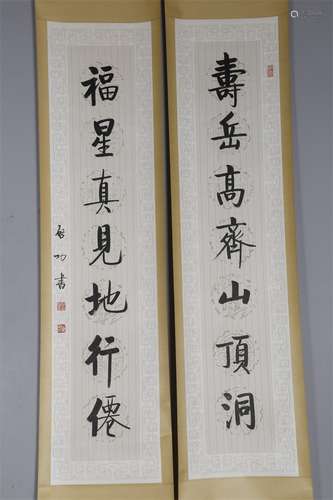 壽岳高齊山頂洞
福星真見地行僊
啓功書